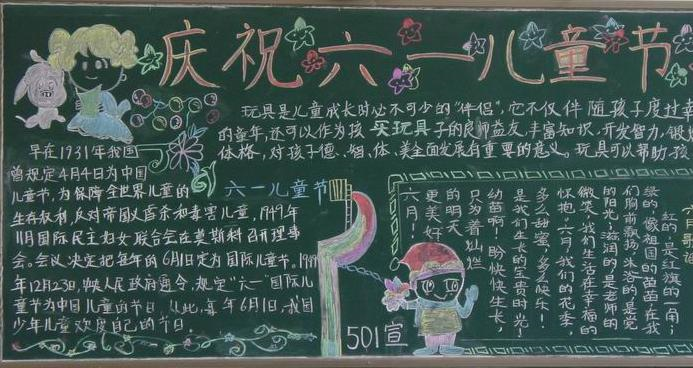 庆祝六一儿童节
玩具是儿童成长时必不可少的“伴侣”,它不仅伴随孩子度过幸
的童年,还可以作为孩 买玩具 子的良师益友,丰富知识,开发智力,锻
体格,对孩子德、智、体、美全面发展有重要的意义。玩具可以帮助孩
早在1931年我国
曾规定4月4日为中国
儿童节,为保障全世界儿童的
生存权利,反对帝国
和毒害儿童,1949年
11月国际民主妇女联合会在莫斯科召开理事
会。会议决定把每年的6月1日定为国际儿童节。19
年12月23日,
人民政府通令,规定“六一”国际儿
童节为中国儿童的节日。从此,每年6月1日,我国
少年儿童欢度自己的节日。
六一儿童节
501宣
红的是红旗的一角;
绿的像祖国的苗苗在我
们胸前飘扬沐浴的是党
的阳光;滋润的是老师的
微笑。我们生活在幸福的
怀抱。六月,我们的花季,
多么甜蜜,多么快乐!
是我们一生长的宝贵时光!
幼苗啊!盼快快生长,
只为着灿烂
的明天
更美好
六月!